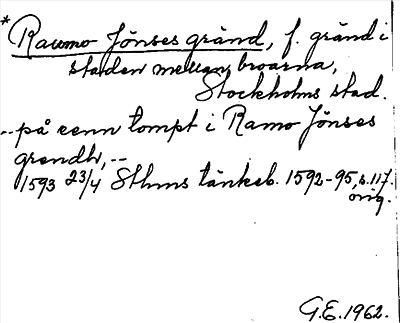 * Raumo Jönses gränd, f. gränd i
staden mellan broarna,
Stockholms stad.
-- på eenn tompt i Ramo Jönses
grendh, --
1593 23/4 Sthms tänkeb. 1592-95, s. 117.
orig.
G.E. 1962.